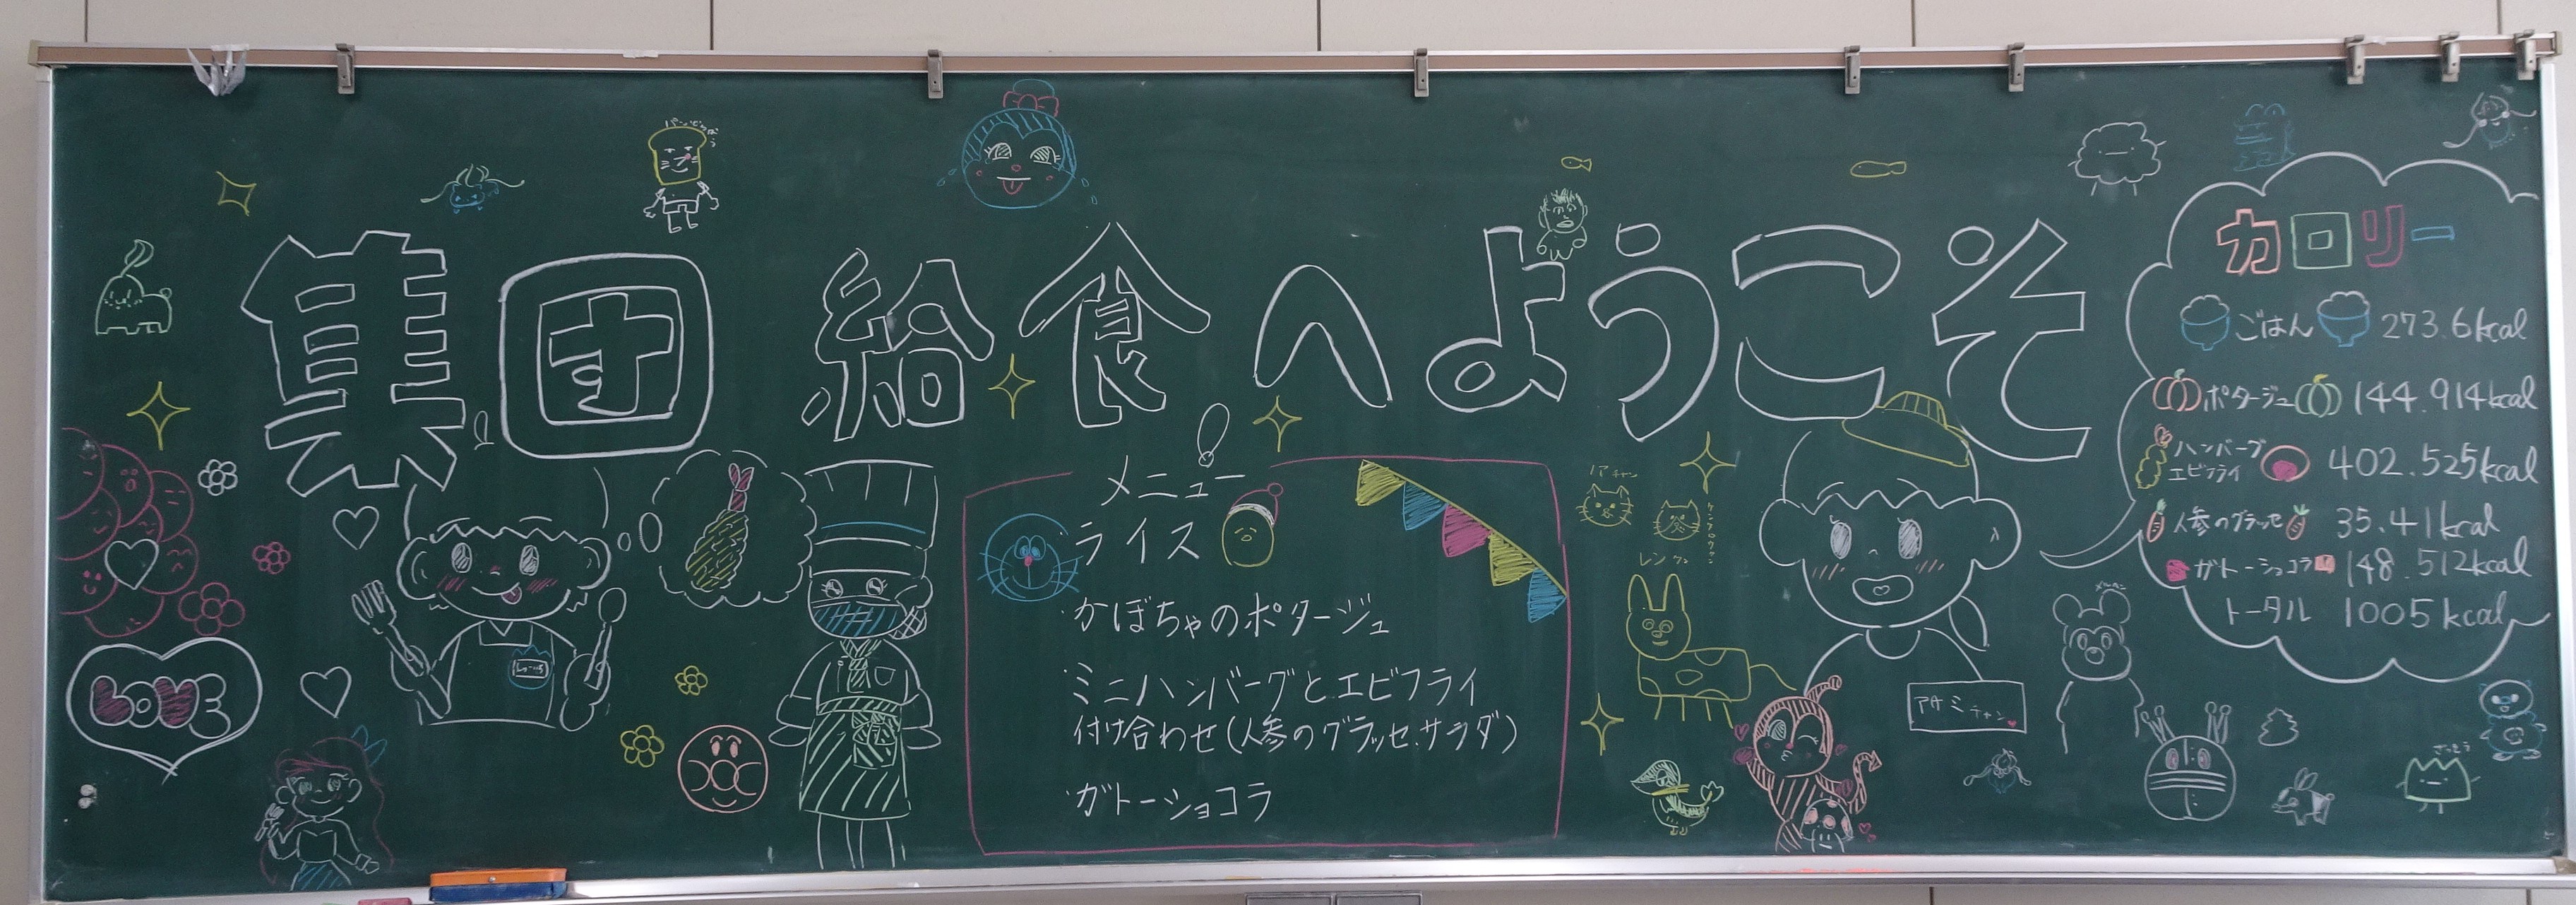 集団給食へようこそ
パンどろぼう
LOVE
メニュー
ライス
・かぼちゃのポタージュ
・ミニハンバーグとエビフライ
付け合わせ(人参のグラッセ、サラダ)
・ガトーショコラ
ノアチャン
レンクン
アサミチャン
メルカン
カロリー
ごはん 273.6kcal
ポタージュ 144.914kcal
ハンバーグ
エビフライ 402.525kcal
人参のグラッセ 35.41kcal
ガトーショコラ 148.512kcal
トータル 1005kcal
ざっそう